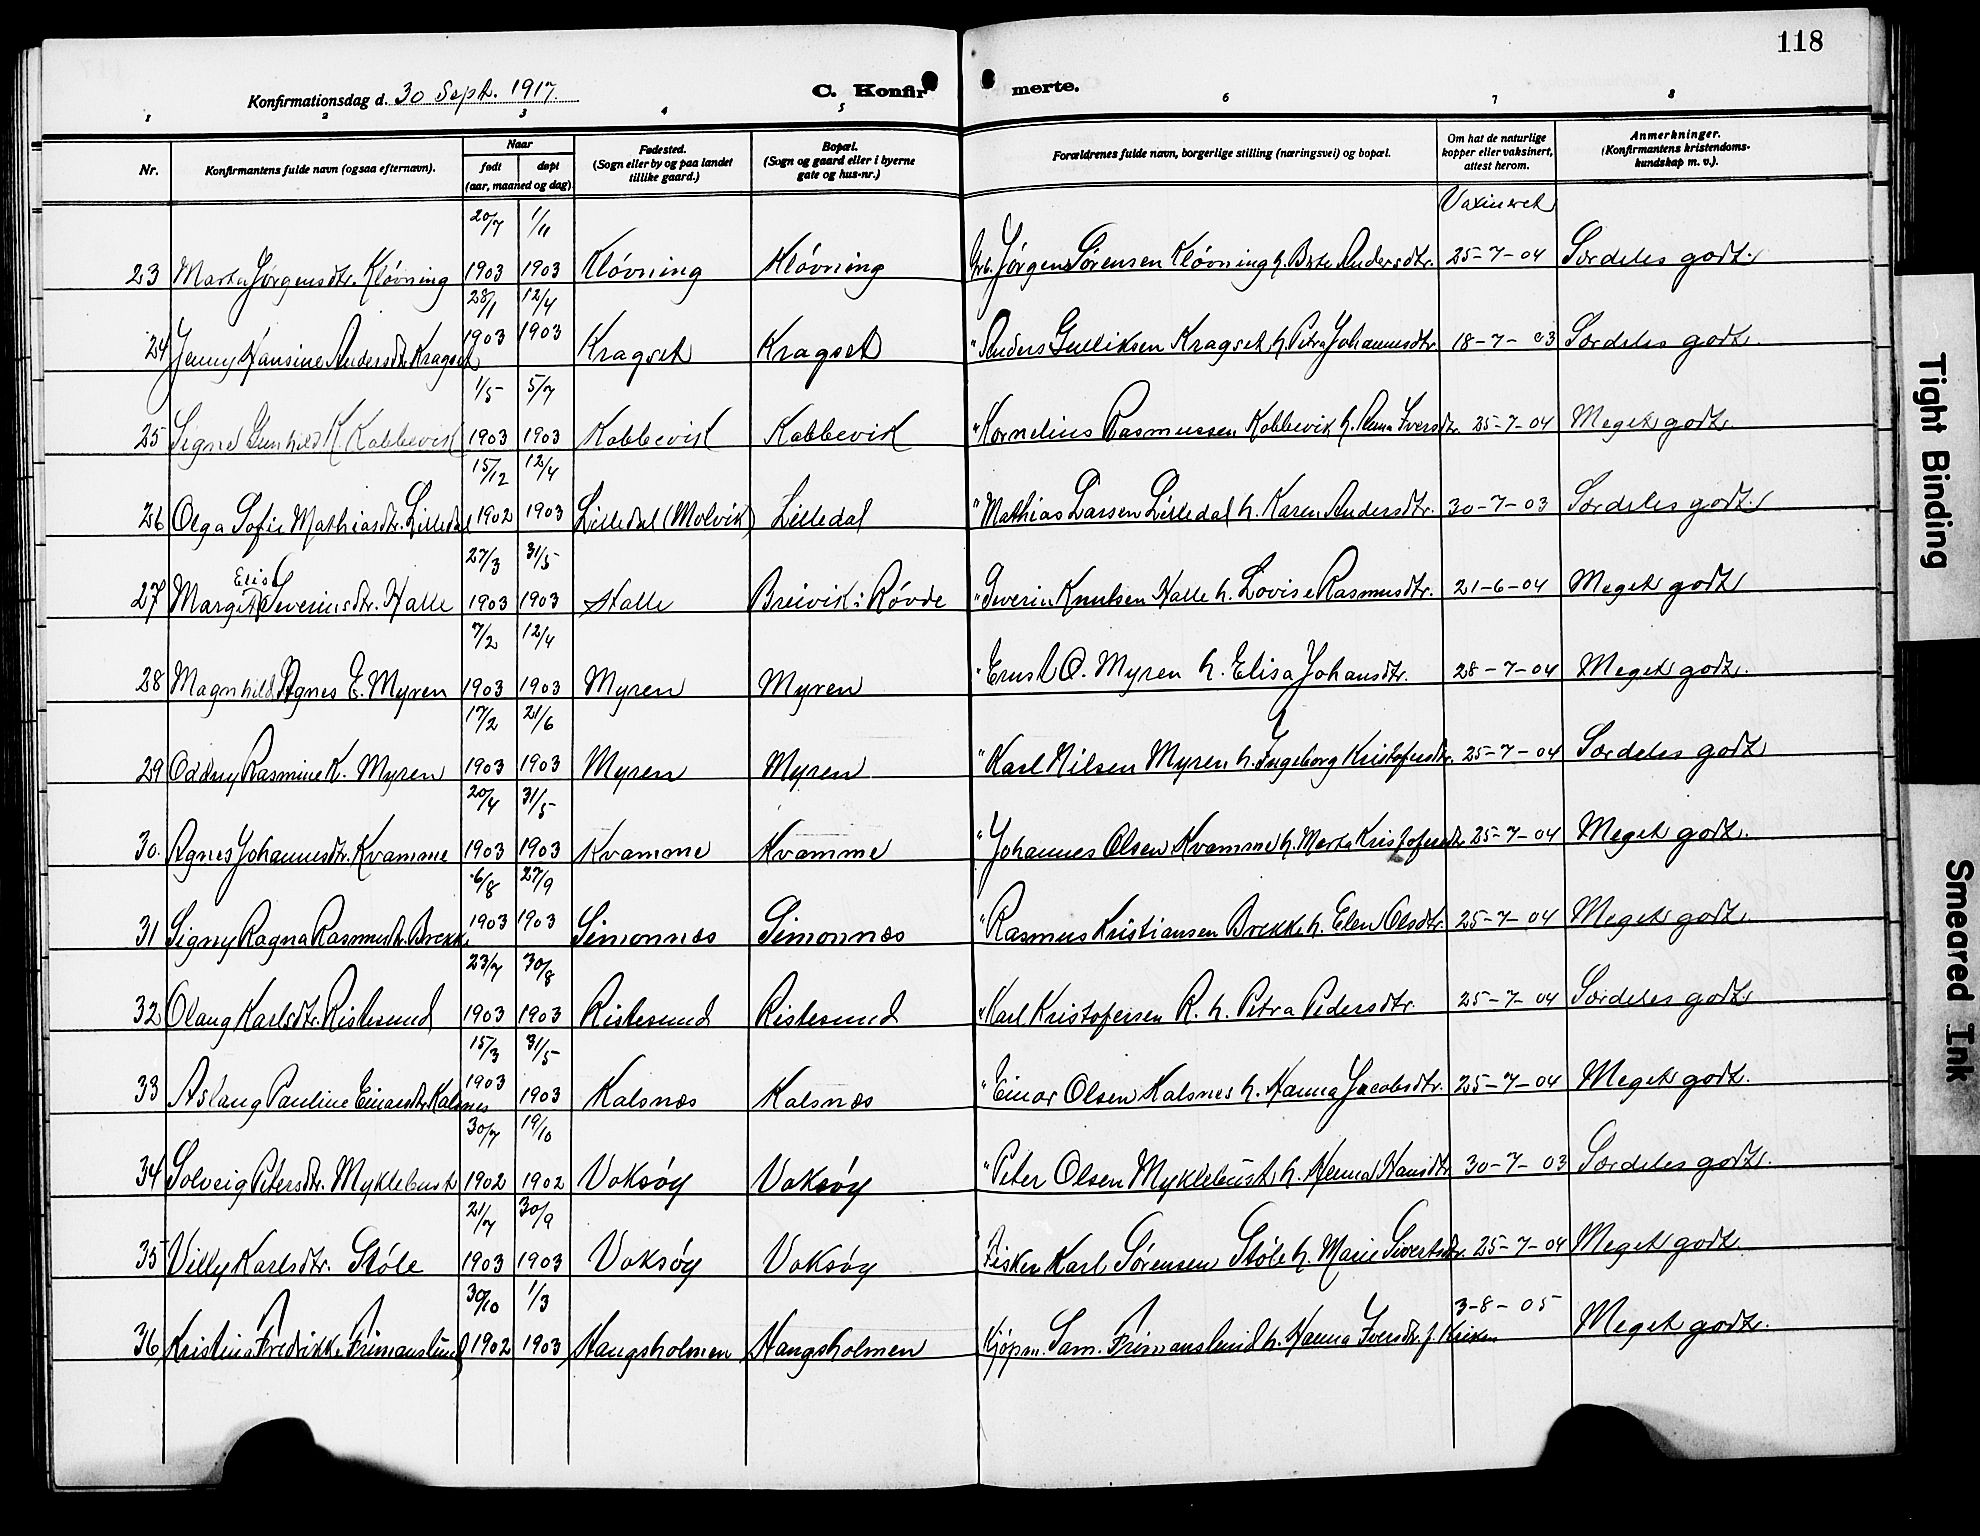 118
Konfirmationsdag d. 30 Sept. 1917.
C. Konfirmerte.
1 2 3 4 5 6 7 8
Nr. | Konfirmantens fulde navn (ogsaa efternavn). | Naar født døpt (aar, maaned og dag) | Fødested. (Sogn eller by og paa landet tillike gaard.) | Bopæl. (Sogn og gaard eller i byerne gate og hus-nr.) | Forældrenes fulde navn, borgerlige stilling (næringsvei) og bopæl. | Om hat de naturlige kopper eller vaksinert, attest herom. | Anmerkninger. (Konfirmantens kristendomskundskap m. v.).
Vaxineret
23 Marta Jørgensdtr. Kløvning 20/7 1903 1/11 1903 Kløvning Kløvning Jørgen Sørensen Kløvning h. Andersdtr. 25-7-04 Særdeles godt.
24 Jenny Hansine Andersdtr. Kragset 28/1 1903 12/4 1903 Kragset Kragset " Anders Gulliksen Kragset h. Petra Johannesdtr. 18-7-03 Særdeles godt.
25 Signe Gunhild K. Kobbevik 1/5 1903 5/7 1903 Kobbevik Kobbevik " Kornelius Rasmussen Kobbevik h. Iversdtr. 25-7-04 Meget godt.
26 Olga Sofie Mathiasdtr. Lilledal 15/12 1902 12/4 1903 Lilledal (Molvik) Lilledal " Mathias Larsen Lilledal h. Karen Andersdtr. 30-7-03 Særdeles godt.
27 Margit Elise Severinsdtr. Halle 27/3 1903 31/5 1903 Halle Breivik i Røvde " Severin Knutsen Halle h. Lovise Rasmusdtr. 21-6-04 Meget godt
28 Magnhild Agnes E. Myren 7/2 1903 12/4 1903 Myren Myren " Ernst O. Myren h. Elisa Johansdtr. 28-7-04 Meget godt.
29 Oddny Rasmine K. Myren 17/2 1903 21/6 1903 Myren Myren " Karl Nilsen Myren h. Ingeborg Kristofersdtr. 25-7-04 Særdeles godt
30. Agnes Johannesdtr. Kvamme 20/4 1903 31/5 1903 Kvamme Kvamme " Johannes Olsen Kvamme h. Marta Kristofersdtr. 25-7-04 Meget godt.
31 Signy Ragna Rasmusdtr. Brekke 6/8 1903 27/9 1903 Simonnæs Simonnæs " Rasmus Kristiansen Brekke h. Elen Olsdtr. 25-7-04 Meget godt.
32 Olaug Karlsdtr. Ristesund 23/7 1903 30/8 1903 Ristesund Ristesund " Karl Kristofersen R. h. Petra Pedersdtr. 25-7-04 Særdeles godt
33 Aslaug Pauline Einarsdtr. Kalsnes 15/3 1903 31/5 1903 Kalsnæs Kalsnæs " Einar Olsen Kalsnes h. Hanna Jacobsdtr. 25-7-04 Meget godt.
34 Solveig Petersdtr. Myklebust 30/7 1902 19/10 1902 Voksøy Voksøy " Peter Olsen Myklebust h. Hansdtr. 30-7-03 Særdeles godt.
35 Villy Karlsdtr. Støle 21/7 1903 30/9 1903 Voksøy Voksøy Fisker Karl Sørensen Støle h. Marie Sivertsdtr. 25-7-04 Meget godt.
36 Kristina Fredrikke Frimanslund 30/10 1902 1/3 1903 Haugsholmen Haugsholmen Kjøpm. Sam. Frimanslund h. Hanna Iversdtr. f. 3-8-05 Meget godt.
Tight Binding
Smeared Ink